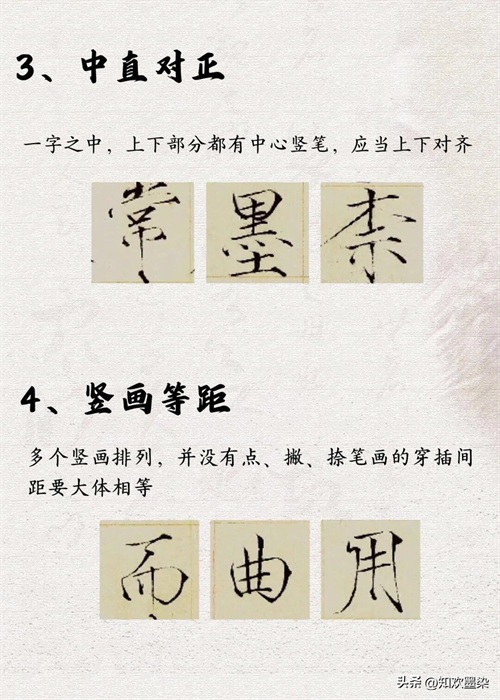 3、中直对正
一字之中，上下部分都有中心竖笔，应当上下对齐
常 墨 柰
4、竖画等距
多个竖画排列，并没有点、撇、捺笔画的穿插间
距要大体相等
而 曲 用
头条 @知欢墨染